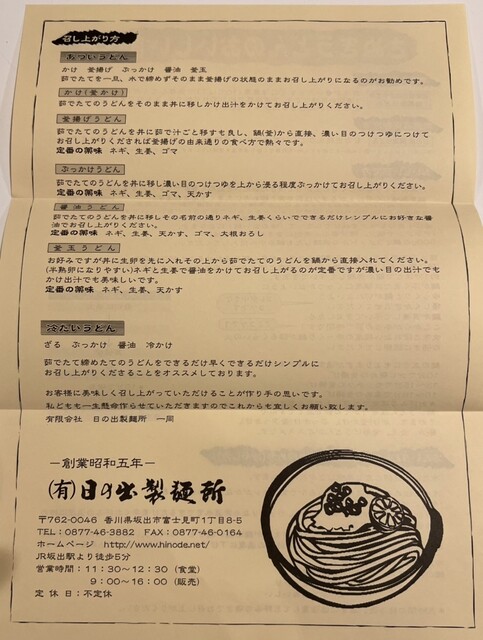 召し上がり方
あついうどん
かけ 釜揚げ ぶっかけ 醤油 釜玉
茹でたてを一旦、水で締めずそのまま釜揚げの状態のままお召し上がりになるのがお勧めです。
かけ(釜かけ)
茹でたてのうどんをそのまま丼に移しかけ出汁をかけてお召し上がりください。
釜揚げうどん
茹でたてのうどんを丼に茹で汁ごと移すも良し、鍋(釜)から直接、濃い目のつけつゆにつけて
お召し上がりくだされば釜揚げの由来通りの食べ方で熱々です。
定番の薬味 ネギ、生姜、ゴマ
ぶっかけうどん
茹でたてのうどんを丼に移し濃い目のつけつゆを上から浸る程度ぶっかけてお召し上がりください。
定番の薬味 ネギ、生姜、ゴマ、天かす
醤油うどん
茹でたてのうどんを丼に移しその名前の通りネギ、生姜くらいでできるだけシンプルにお好きな醤
油でお召し上がりください。
定番の薬味 ネギ、生姜、天かす、ゴマ、大根おろし
釜玉うどん
お好みですが丼に生卵を先に入れその上から茹でたてのうどんを鍋から直接入れてください。
(半熟卵になりやすい)ネギと生姜で醤油をかけてお召し上がるのが定番ですが濃い目の出汁でも
かけ出汁でも美味しいです。
定番の薬味 ネギ、生姜、天かす
冷たいうどん
ざる ぶっかけ 醤油 冷かけ
茹でたて締めたてのうどんをできるだけ早くできるだけシンプルに
お召し上がりくださることをオススメしております。
お客様に美味しく召し上がっていただけることが作り手の思いです。
私どもも一生懸命作らせていただきますのでこれからも宜しくお願い致します。
有限会社 日の出製麺所 一同
－創業昭和五年－
(有)日の出製麺所
〒762-0046 香川県坂出市富士見町1丁目8-5
TEL：0877-46-3882 FAX：0877-46-0164
ホームページ http://www.hinode.net/
JR坂出駅より徒歩5分
営業時間：11:30～12:30（食堂）
9:00～16:00（販売）
定休日：不定休